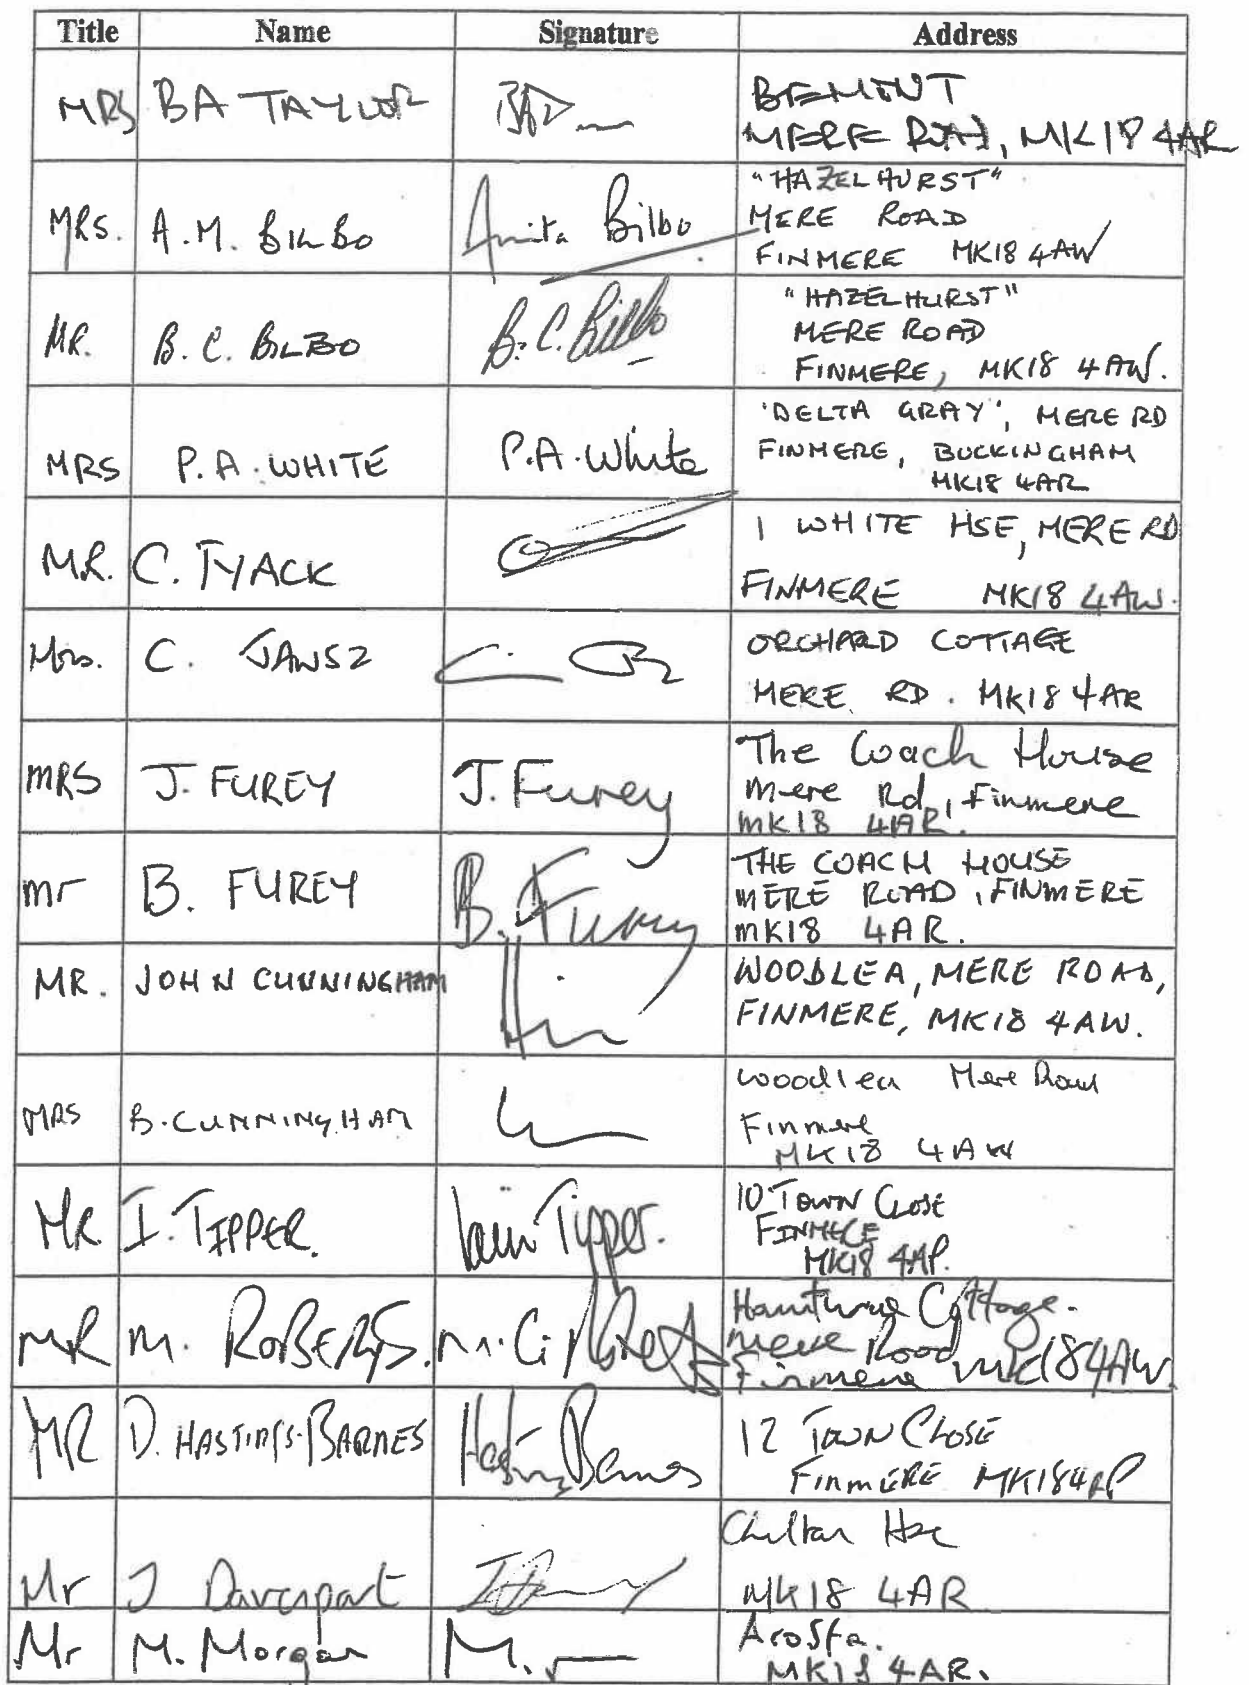 Title Name Signature Address
MRS BA TAYLOR
MERE ROAD, MK18 4AR
MRS. A.M. BILBO Anita Bilbo
"HAZELHURST"
MERE ROAD
FINMERE MK18 4AW
MR. B. C. BILBO B. C. Bilbo
"HAZELHURST"
MERE ROAD
FINMERE, MK18 4AW.
MRS P.A. WHITE P.A. White
'DELTA GRAY', MERE RD
FINMERE, BUCKINGHAM
MK18 4AR
MR. C. TYACK
1 WHITE HSE, MERE RD
FINMERE MK18 4AW.
Mrs. C. JANSZ
ORCHARD COTTAGE
MERE RD. MK18 4AR
MRS J. FUREY J. Furey
The Coach House
Mere Rd, Finmere
MK18 4AR.
mr B. FUREY B. Furey
THE COACH HOUSE
MERE ROAD, FINMERE
MK18 4AR.
MR. JOHN CUNNINGHAM
WOODLEA, MERE ROAD,
FINMERE, MK18 4AW.
MRS B. CUNNINGHAM
Woodlea Mere Road
Finmere
MK18 4AW
MR I. TIPPER. Iain Tipper.
10 TOWN CLOSE
FINMERE
MK18 4AP.
MR M. ROBERTS.
Cottage.
Mere Road
Finmere MK18 4AW.
MR D. HASTINGS-BARNES Hastings Barnes
12 TOWN CLOSE
FINMERE MK18 4AP
Mr J Davenport
MK18 4AR
Mr M. Morgan M.
Acosta.
MK18 4AR.